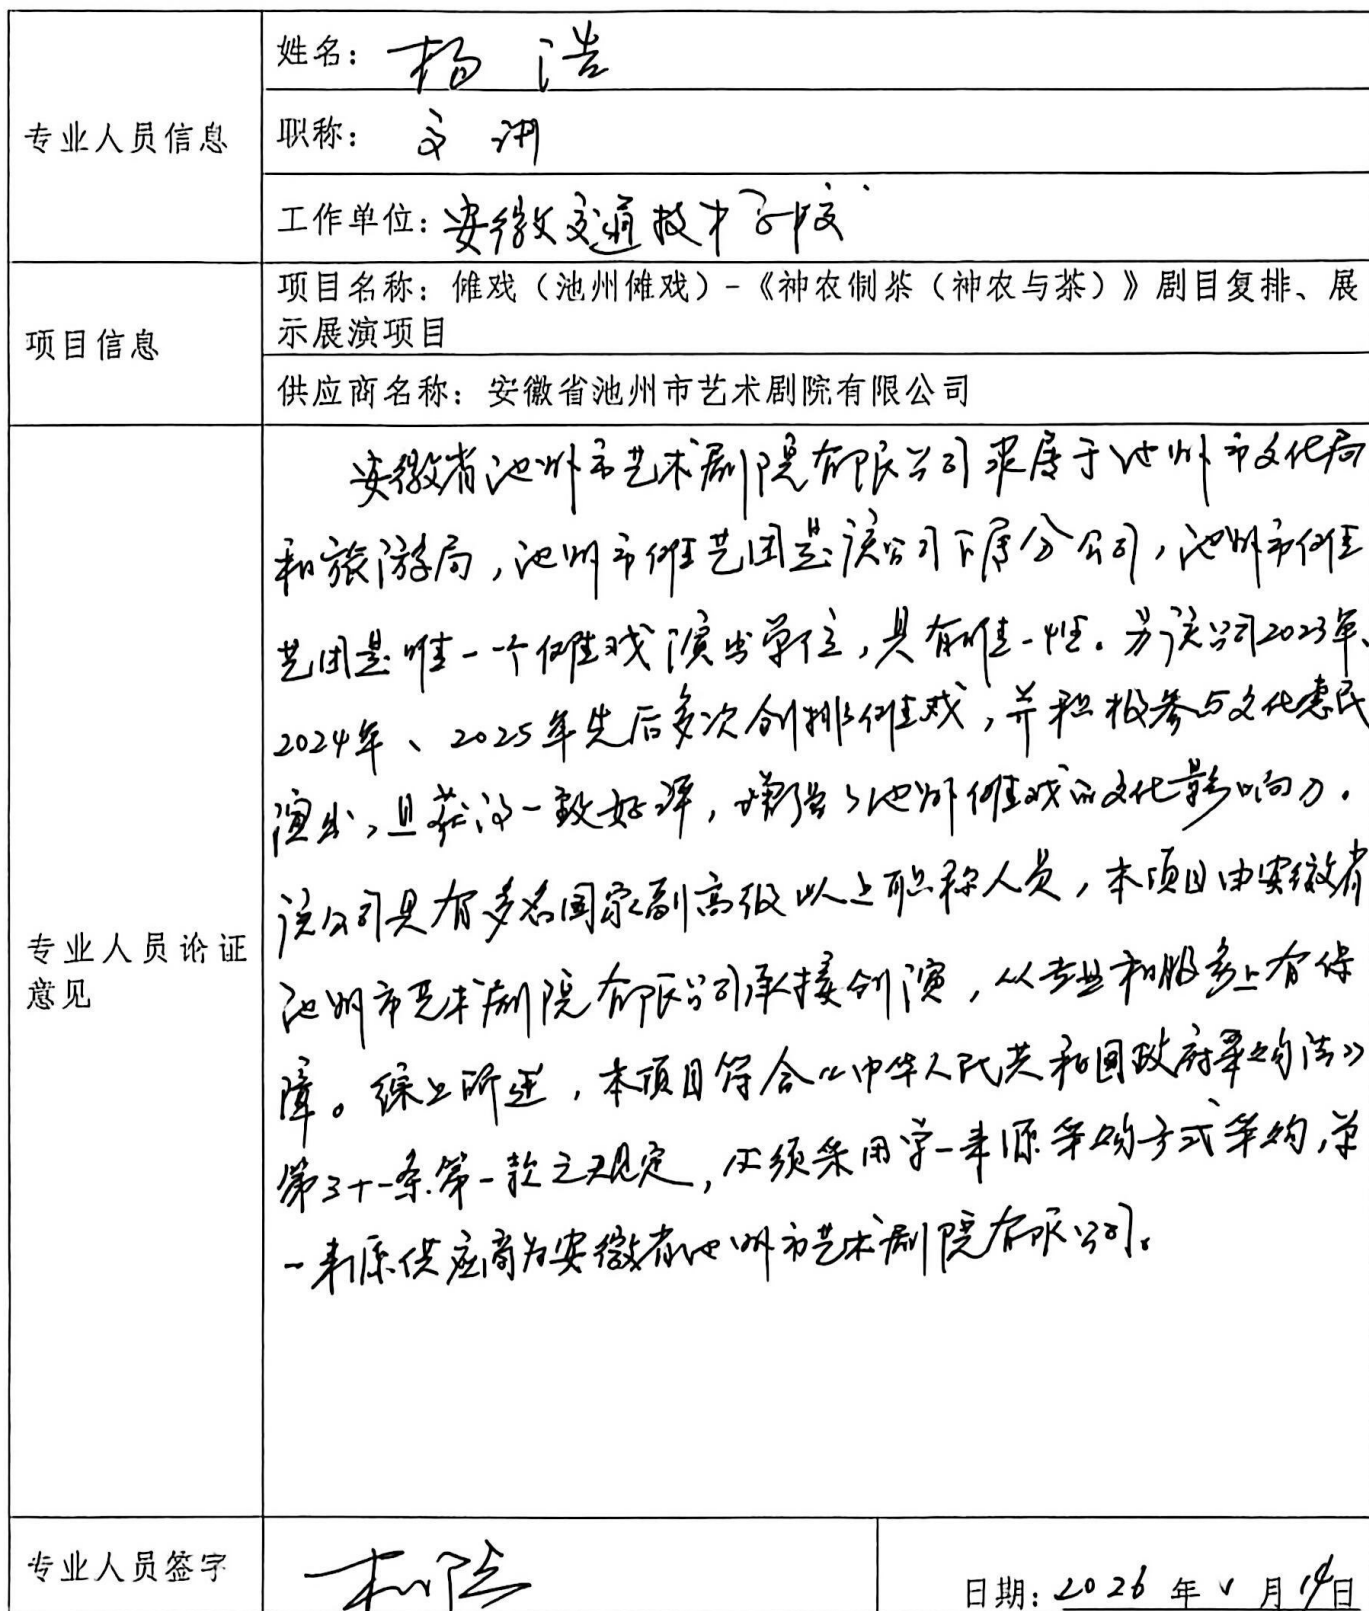 姓名：杨浩
专业人员信息
职称：
工作单位：安徽交通技术学校
项目名称：傩戏（池州傩戏）-《神农制茶（神农与茶）》剧目复排、展
示展演项目
项目信息
供应商名称：安徽省池州市艺术剧院有限公司
安徽省池州市艺术剧院有限公司隶属于池州市文化局
和旅游局，池州市傩艺团是该公司下属分公司，池州市傩
艺团是唯一一个傩戏演出单位，具有唯一性。另该公司2023年、
2024年、2025年先后多次创排傩戏，并积极参与文化惠民
演出，且获得一致好评，增强了池州傩戏的文化影响力。
该公司具有多名国家副高级以上职称人员，本项目由安徽省
专业人员论证
意见
池州市艺术剧院有限公司承接创演，从专业和服务上有保
障。综上所述，本项目符合《中华人民共和国政府采购法》
第三十一条第一款之规定，必须采用单一来源采购方式采购，单
一来源供应商为安徽省池州市艺术剧院有限公司。
专业人员签字
日期：2026年 月 日